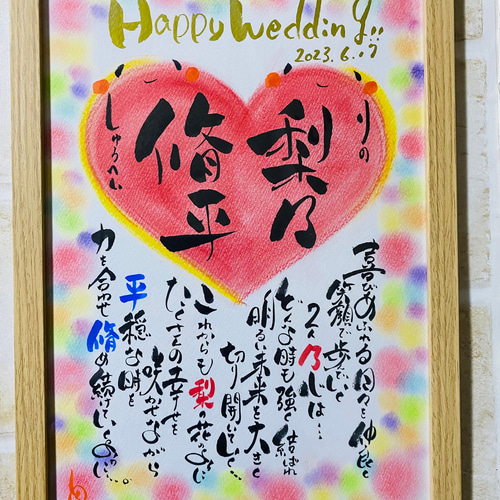 Happy Wedding!!
2023.6.17
梨乃
りの
脩平
しゅうへい
喜びあふれる日々を仲良く
笑顔で歩でいく
2人乃しは…
どんな時も強く結ばれ
明るい未来を大きく
切り開いていく…
これからも梨の花のように
たくさんの幸せを
咲かせながら
平穏な時を
力を合わせ脩め続けていくのだ…。